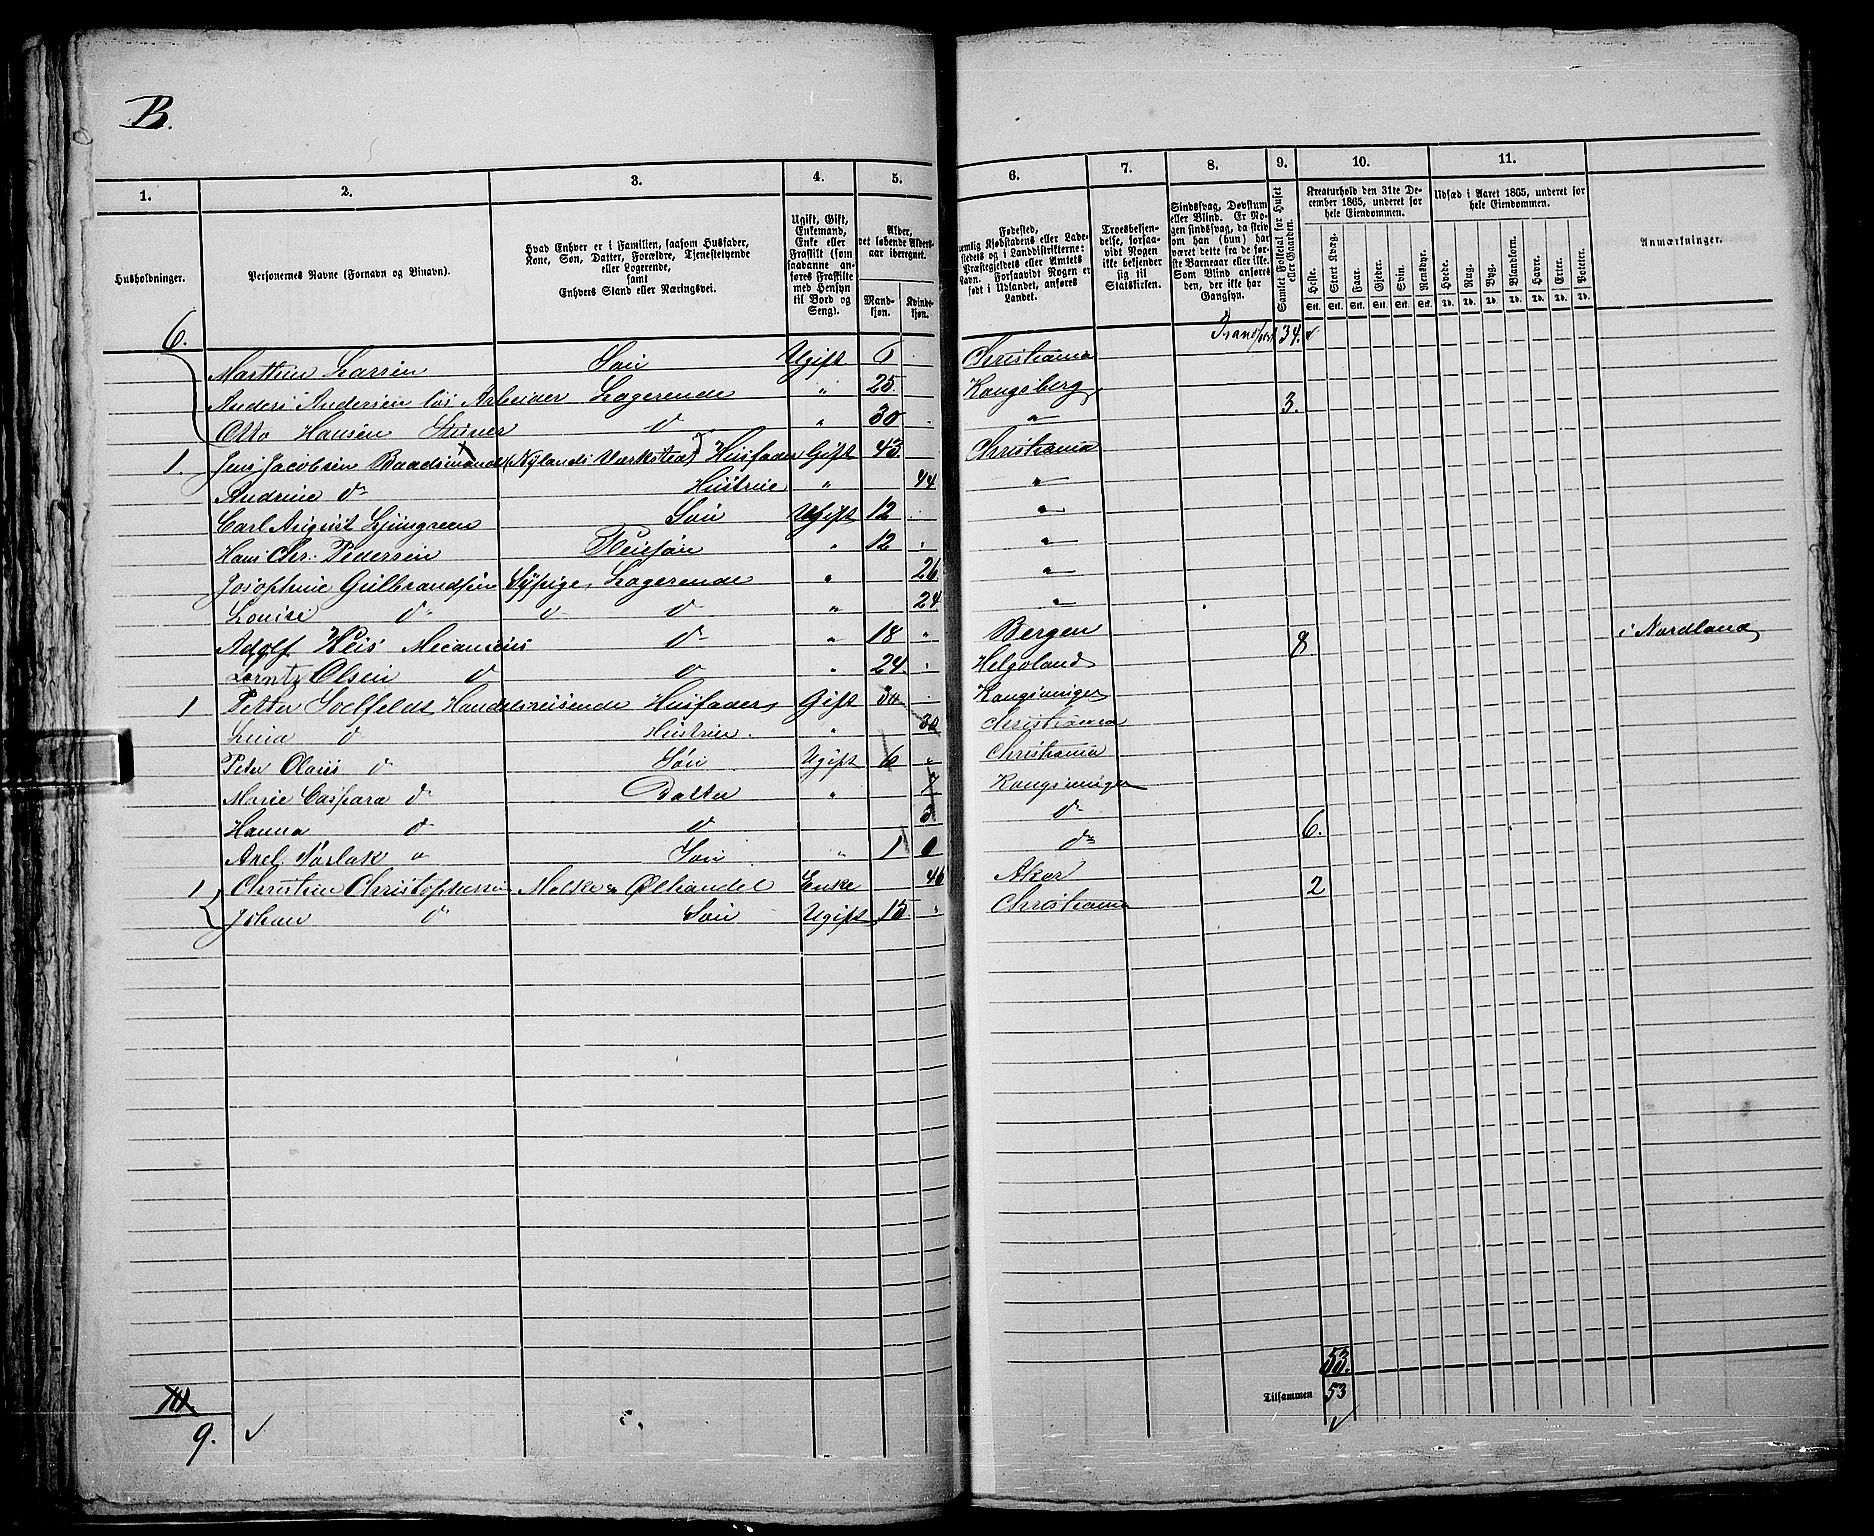 B.
1. 2. 3. 4. 5. 6. 7. 8. 9. 10. 11.
Husholdninger.
Personernes Navne (Fornavn og Tilnavn).
Hvad Enhver er i Familien, saasom Husfader, Kone, Søn, Datter, Forældre, Tjenestetyende eller Logerende, samt Enhvers Stand eller Næringsvei.
Ugift, Gift, Enkemand, Enke eller Fraskilt (som saadanne anføres Fraskilte med Hensyn til Bord og Seng).
Alder, det løbende Alders-aar iberegnet.
Mand-kjøn. Kvinde-kjøn.
Fødested, nemlig Kjøbstadens eller Ladestedets og i Landdistrikterne: Præstegjeldets eller Amtets Navn. Forsaavidt Nogen er født i Udlandet, anføres Landet.
Troesbekjendelse, forsaavidt Nogen ikke bekjender sig til Statskirken.
Sindssvag, Døvstum eller Blind. Er Nogen sindssvag, da skrives om han (hun) har været dette fra de første Barneaar eller ikke. Som Blind anføres den, der ikke har Gangsyn.
Samlet Folketal for Huset eller Gaarden.
Kreaturhold den 31te December 1865, underet for hele Eiendommen.
Heste. Stort Kvæg. Faar. Gjeder. Svin. Rensdyr.
Stk. Stk. Stk. Stk. Stk. Stk.
Udsæd i Aaret 1865, underet for hele Eiendommen.
Hvede. Rug. Byg. Blandkorn. Havre. Erter. Poteter.
Td. Td. Td. Td. Td. Td. Td.
Anmærkninger.
6. 34.
Marthin Larsen Søn Ugift 6 Christiania
Anders Andersen løs Arbeider Logerende " 25 Kongsberg 3.
Otto Hansen do " 30 "
1. Jens Jacobsen Baadsmand (Nylands Værksted) Husfader Gift 43 Christiania
Andrine do Hustrue " 44 "
Carl August Ljungreen Søn Ugift 12 "
Hans Chr. Pedersen Pleiesøn " 12 "
Josephine Gulbrandsen Sypige, Logerende " 26 "
Louise do do do " 24 "
Adolf Mecanicus do " 18 " Bergen 8 i Nordland
Lorntz Olsen do do " 24 Helgoland
1 Petter Handelsreisende Husfader Gift 34 Kongsvinger
do Hustrue " 30 Christiania
Peter Olaus do Søn Ugift 6 " Christiania
Marie Caspara do Datter " 7 Kongsvinger
Hanna do do 3 do 6.
Axel do Søn " 1 do
1 Christine Christophersen Melke & Ølhandel Enke 46 Aker 2
Johan do Søn Ugift 15 " Christiania
53.
Tilsammen 53
9.